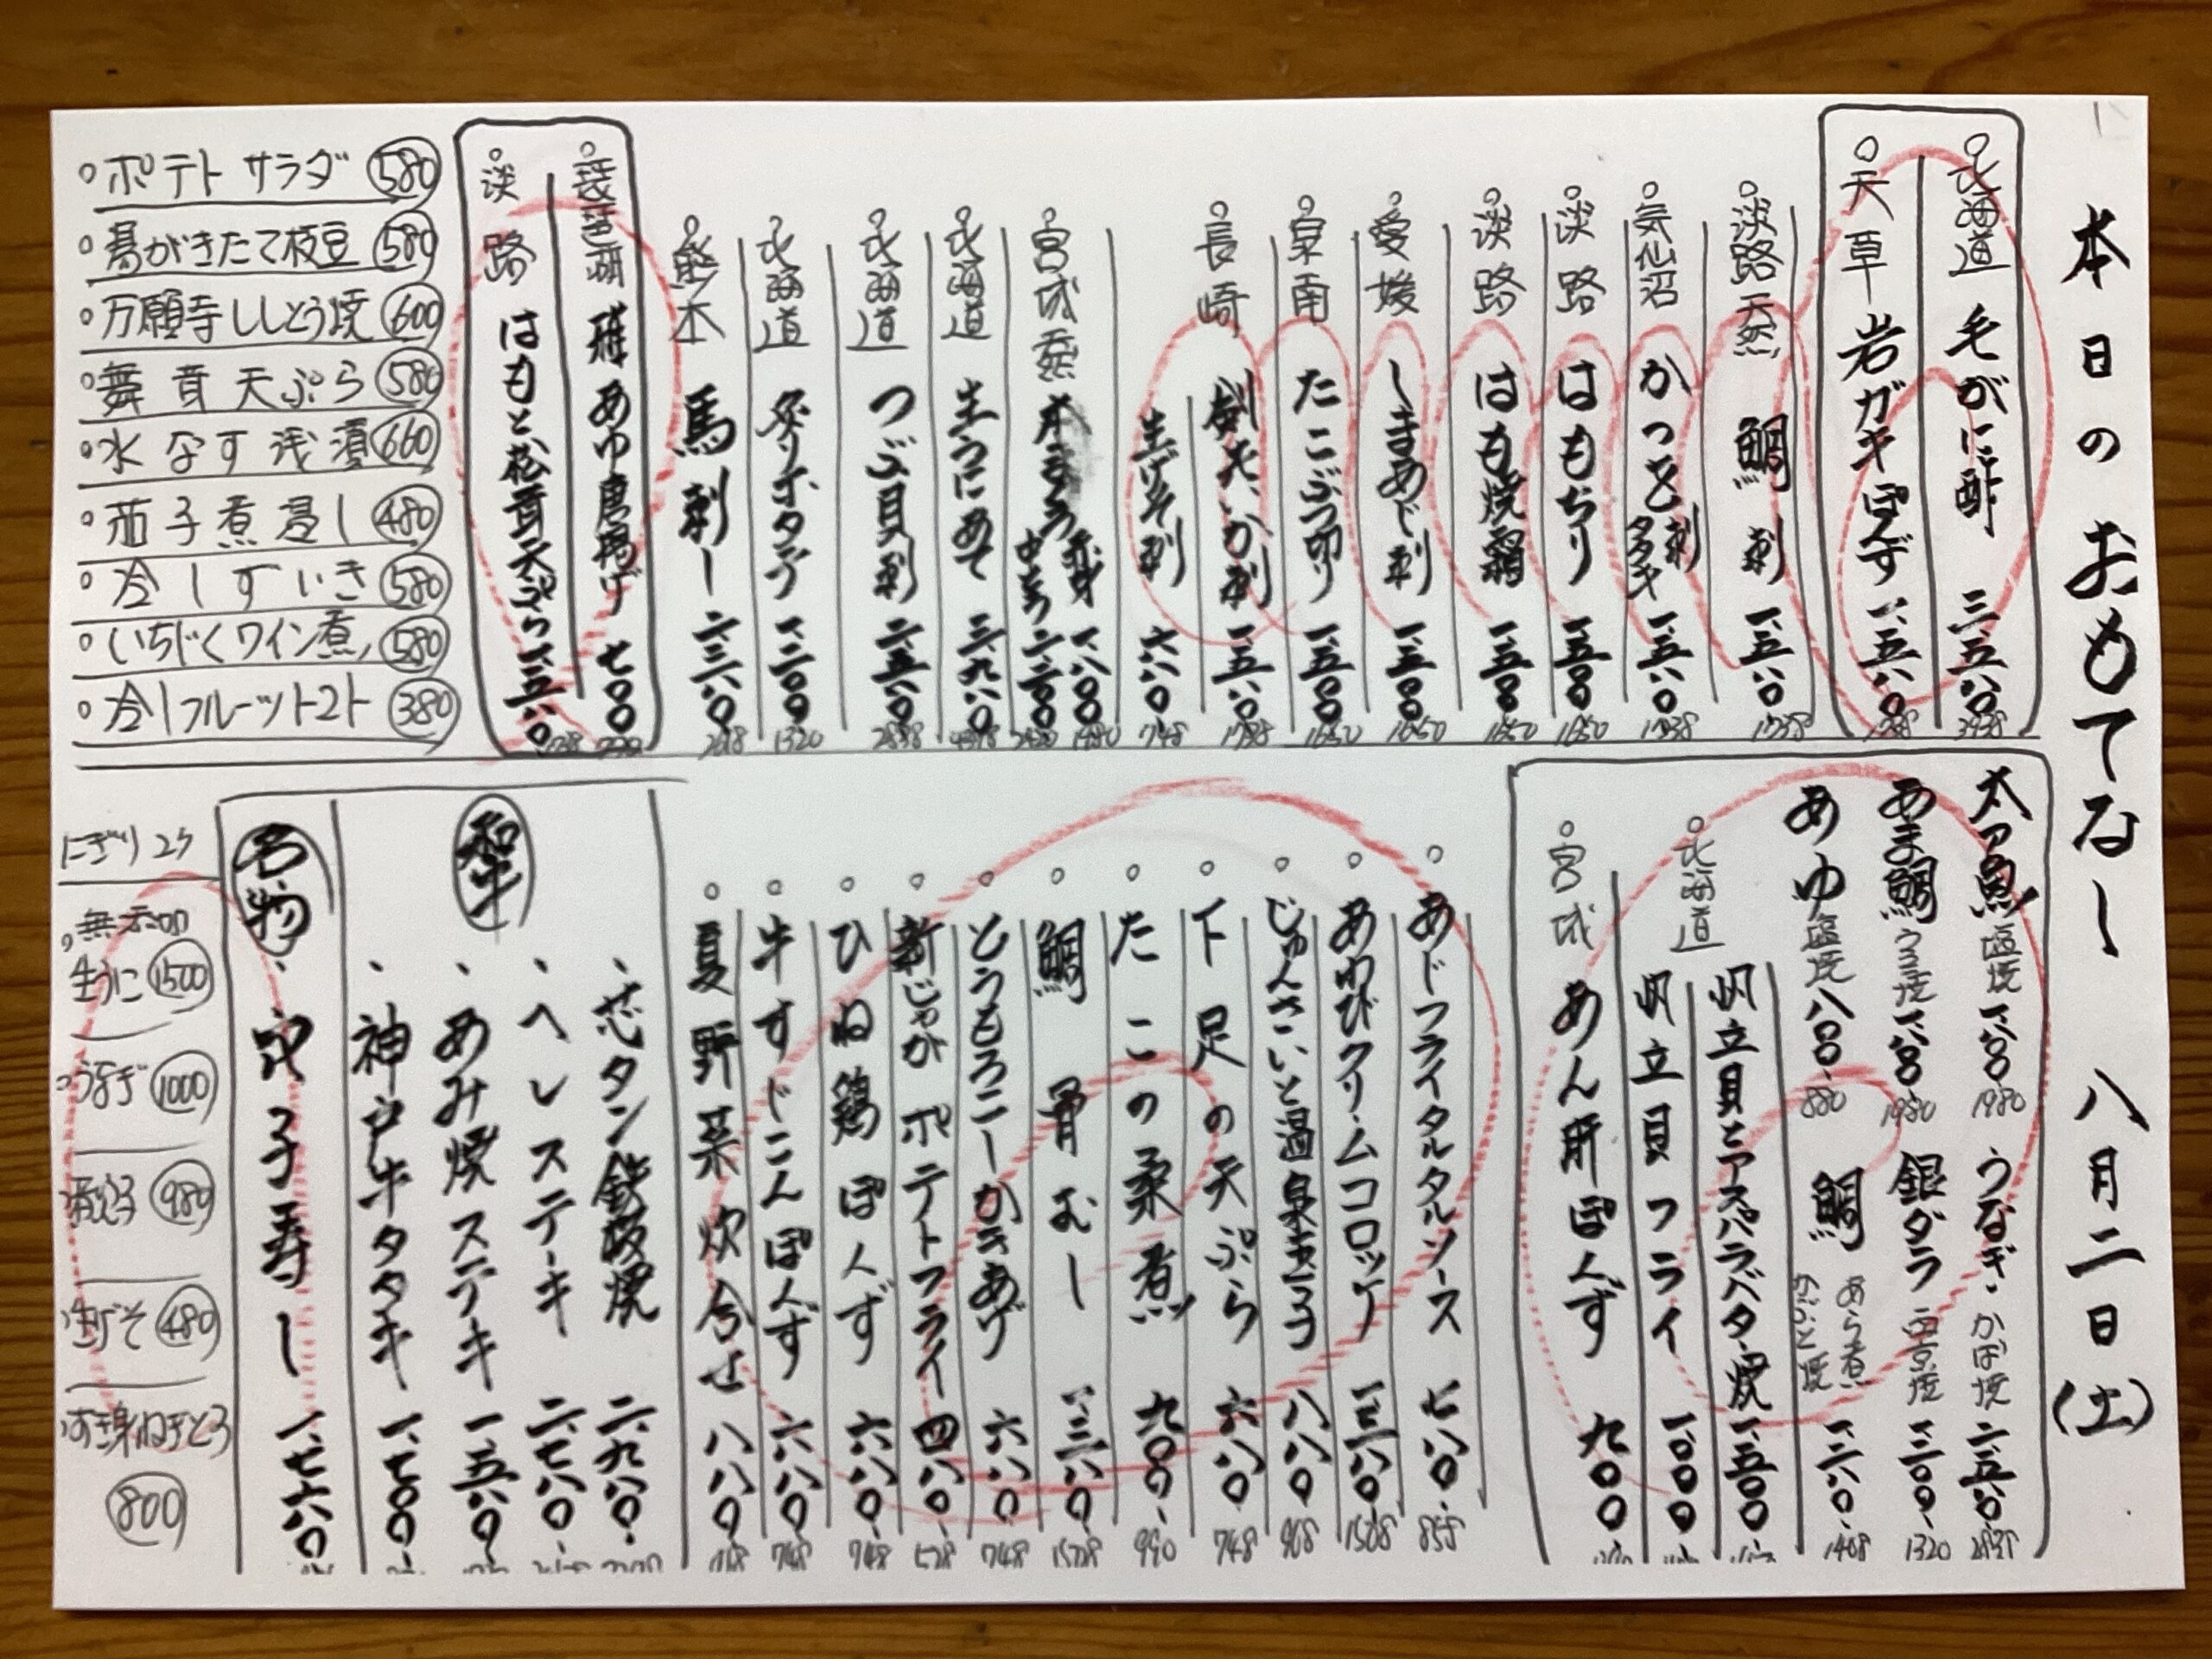 本日のおもてなし 八月二日(土)
北海道 毛がに酢 三、五八〇
天草 岩ガキぽんず 一、五八〇
淡路天然 鯛刺 一、五八〇
気仙沼 かつを刺 タタキ 一、五八〇
淡路 はもちり 一、五〇〇 1650
淡路 はも焼霜 一、五〇〇 1650
愛媛 しまあじ刺 一、五〇〇 1650
泉南 たこぶつ切り 一、五〇〇 1650
長崎 剣先いか刺 一、五八〇
生げそ刺 六八〇 748
宮城 本まぐろ 赤身 一、八〇〇
中とろ 二、二〇〇
北海道 生うにあて 三、九八〇
北海道 つぶ貝刺 二、五八〇
北海道 炙りホタテ 一、二〇〇 1320
熊本 馬刺し 二、三八〇
琵琶湖 稚あゆ唐揚げ 七〇〇
淡路 はもと松茸天ぷら 一、五八〇
ポテトサラダ 580
湯がきたて枝豆 580
万願寺ししとう焼 600
舞茸天ぷら 580
水なす浅漬 660
茄子煮浸し 480
冷しずいき 580
いちじくワイン煮 580
冷しフルーツトマト 380
太刀魚 塩焼 一、八〇〇 1980
うなぎ かば焼 二、五八〇
あま鯛 うろこ焼 一、八〇〇 1980
銀ダラ 西京焼 一、二〇〇 1320
あゆ 塩焼 八〇〇 880
鯛 あら煮 かぶと焼 一、二八〇 1408
北海道 帆立貝とアスパラバター焼 一、五〇〇
帆立貝フライ 一、〇〇〇
宮城 あん肝ぽんず 九〇〇
あじフライタルタルソース 七八〇 858
あわびクリームコロッケ 一、三八〇
じゅんさいと温泉玉子 八八〇 968
下足の天ぷら 六八〇 748
たこの柔煮 九〇〇 990
鯛骨むし 一、三八〇
とうもろこしかきあげ 六八〇 748
新じゃがポテトフライ 四八〇 528
ひね鶏ぽんず 六八〇 748
牛すじこんぽんず 六八〇 748
夏野菜炊合せ 八八〇
和牛
芯タン鉄板焼 二、九八〇
ヘレステーキ 二、七八〇
あみ焼ステーキ 一、五八〇
神戸牛タタキ 一、七〇〇
名物
穴子寿し 一、七六〇
にぎり2ケ
無添加
生うに 1500
うなぎ 1000
980
生げそ 480
すき身ねぎとろ
800